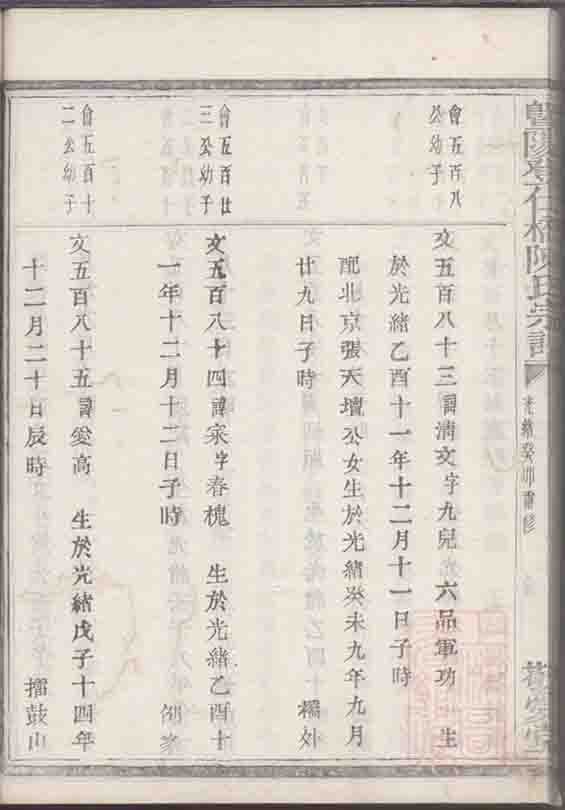 會五百八
公幼子
文五百八十三諱清文字九兒 六品軍功 生
於光緒乙酉十一年十二月十一日子時
配北京張天壇公女生於光緒癸未九年九月
廿九日子時
會五百廿
三公幼子
文五百八十四諱宋字春槐 生於光緒乙酉十
一年十二月十二日子時
會五百十
二公幼子
文五百八十五諱愛高 生於光緒戊子十四年
十二月二十日辰時 擂鼓山
陳氏宗譜
光緒癸卯重修